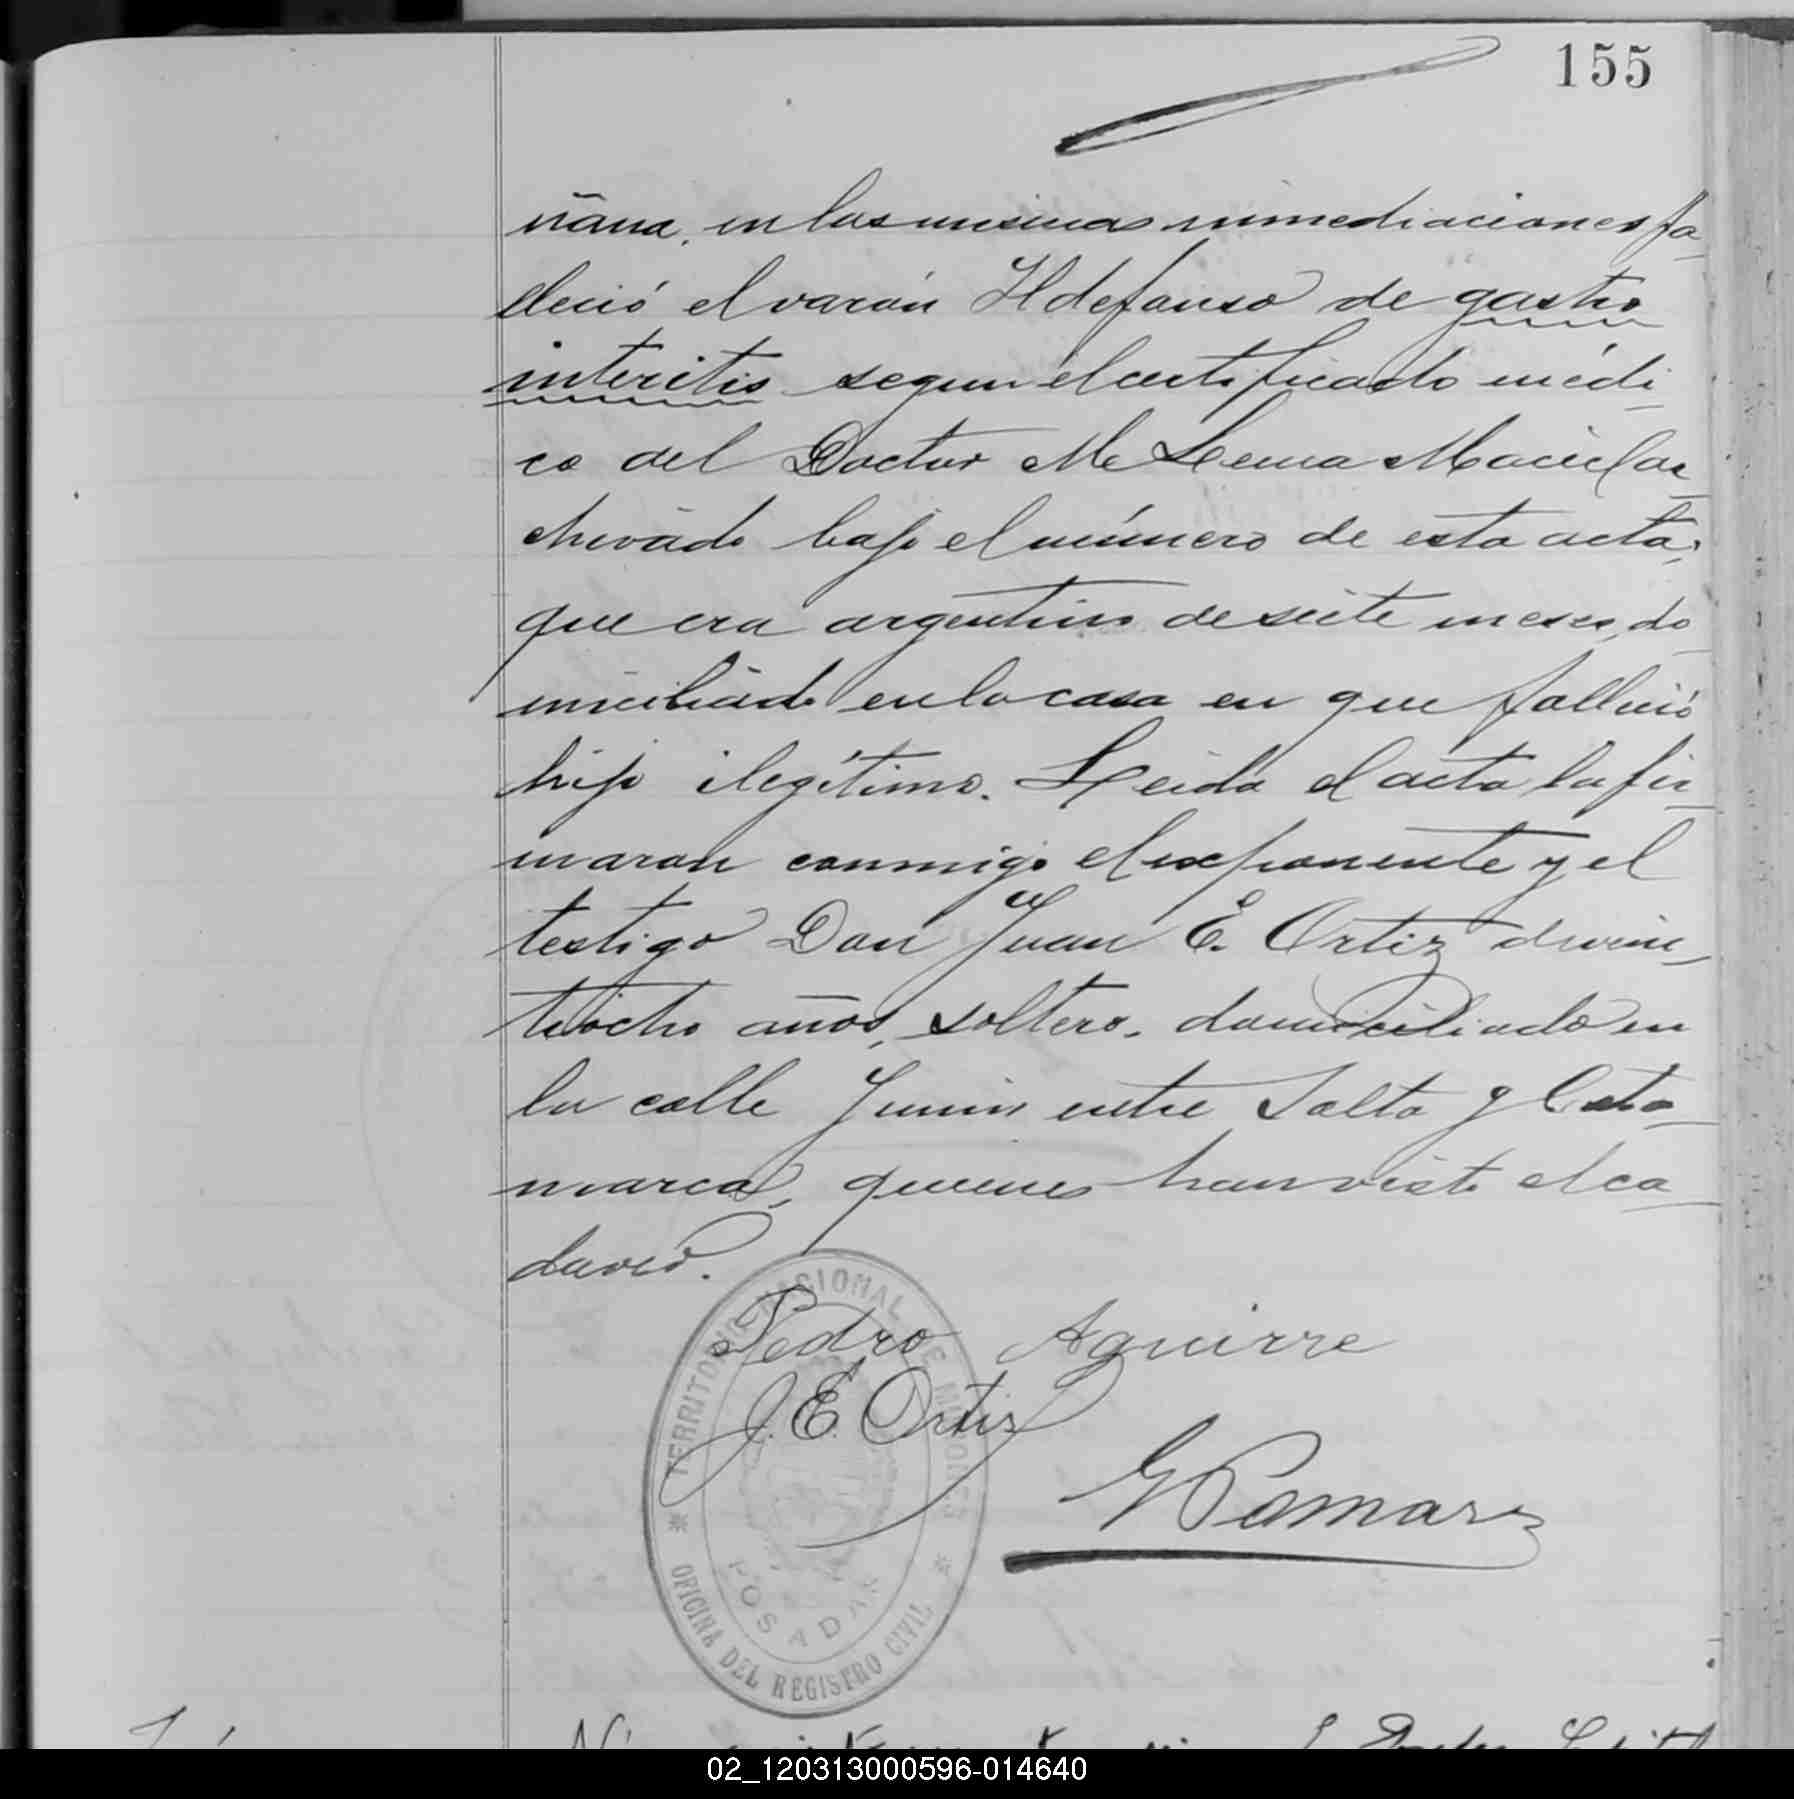 155
ñana, en las mismas inmediaciones fa-
lleció el varón Ildefonso de gastro
interitis segun el certificado médi-
co del Doctor M Lema Maciel ar-
chivado bajo el número de esta acta,
que era argentino de siete meses, do-
miciliado en la casa en que falleció
hijo ilegítimo. Leida el acta la fir-
maron conmigo el exponente y el
testigo Don Juan E. Ortiz de vein-
tiocho años, soltero, domiciliado en
la calle Junin entre Salta y Cata-
marca, quienes han visto el ca-
daver.
Pedro Aguirre
J. E. Ortiz
G Pomar
TERRITORIO NACIONAL DE MISIONES
POSADAS
OFICINA DEL REGISTRO CIVIL
02_120313000596-014640